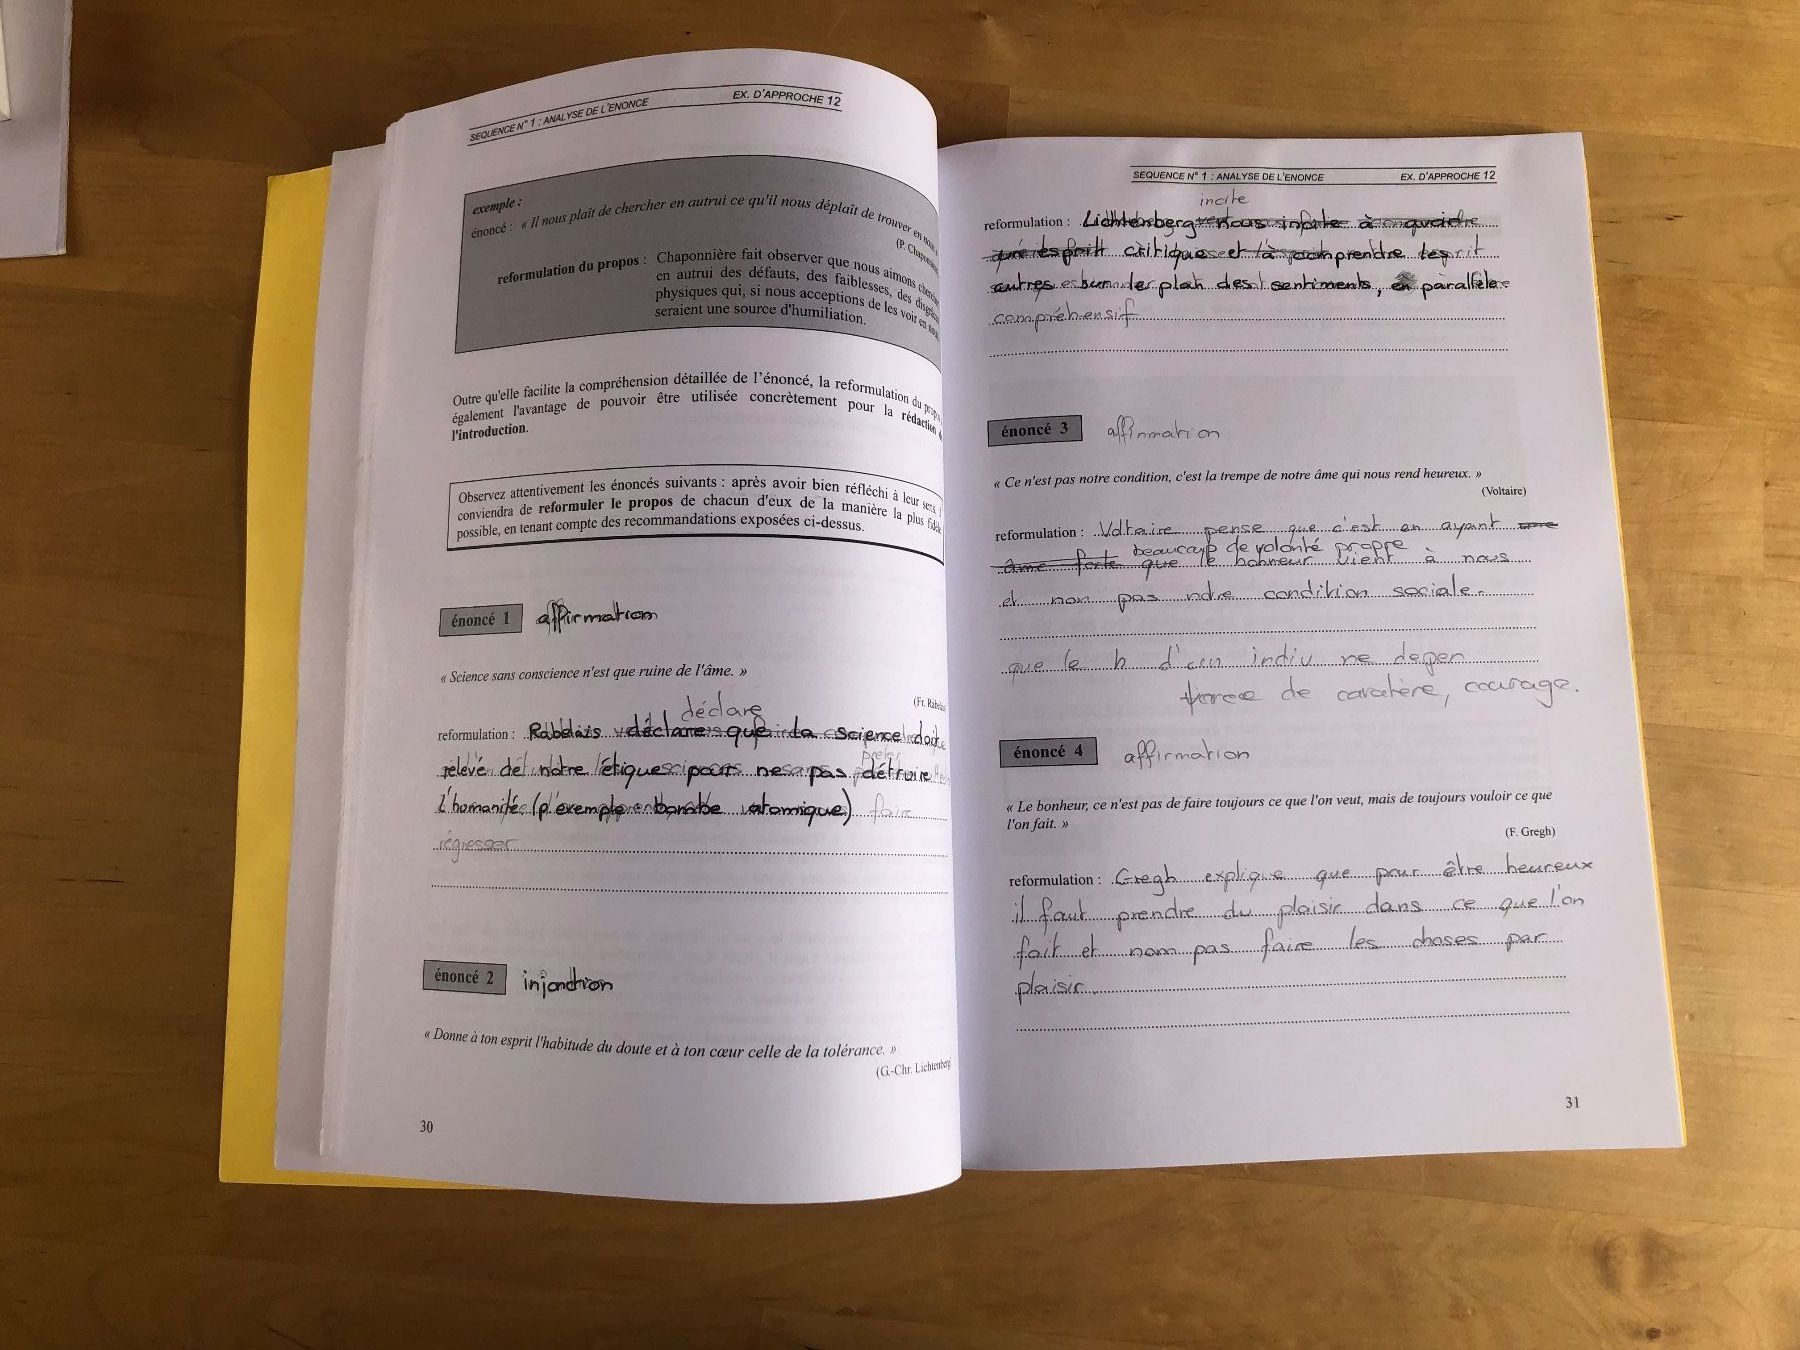 SEQUENCE N° 1 : ANALYSE DE L'ENONCE EX. D'APPROCHE 12
exemple :
énoncé : « Il nous plaît de chercher en autrui ce qu'il nous déplaît de trouver en
(P.
reformulation du propos : Chaponnière fait observer que nous aimons
en autrui des défauts, des faiblesses, des
physiques qui, si nous acceptions de les voir en
seraient une source d'humiliation.
Outre qu'elle facilite la compréhension détaillée de l'énoncé, la reformulation du
également l'avantage de pouvoir être utilisée concrètement pour la rédaction
l'introduction.
Observez attentivement les énoncés suivants : après avoir bien réfléchi à leur sens
conviendra de reformuler le propos de chacun d'eux de la manière la plus
possible, en tenant compte des recommandations exposées ci-dessus.
énoncé 1 affirmation
« Science sans conscience n'est que ruine de l'âme. »
(Fr.
déclare
reformulation : Rabelais déclare que la science doit
relevé de notre étique pour ne pas détruire
L'humanité (p.exemple bombe atomique) faire
régresser
énoncé 2 injonction
« Donne à ton esprit l'habitude du doute et à ton cœur celle de la tolérance. »
(G.-Chr. Lichtenberg
30
SEQUENCE N° 1 : ANALYSE DE L'ENONCE EX. D'APPROCHE 12
incite
reformulation : Lichtenberg nous incite à
esprit critique et à comprendre les
autres sur le plan des sentiments, en parallèle
compréhensif
énoncé 3 affirmation
« Ce n'est pas notre condition, c'est la trempe de notre âme qui nous rend heureux. »
(Voltaire)
reformulation : Voltaire pense que c'est en ayant une
beaucoup de volonté propre
âme forte que le bonheur vient à nous
et non pas notre condition sociale.
que le h d'un indiv ne dépen
force de caractère, courage.
énoncé 4 affirmation
« Le bonheur, ce n'est pas de faire toujours ce que l'on veut, mais de toujours vouloir ce que
l'on fait. »
(F. Gregh)
reformulation : Gregh explique que pour être heureux
il faut prendre du plaisir dans ce que l'on
fait et nom pas faire les choses par
plaisir.
31